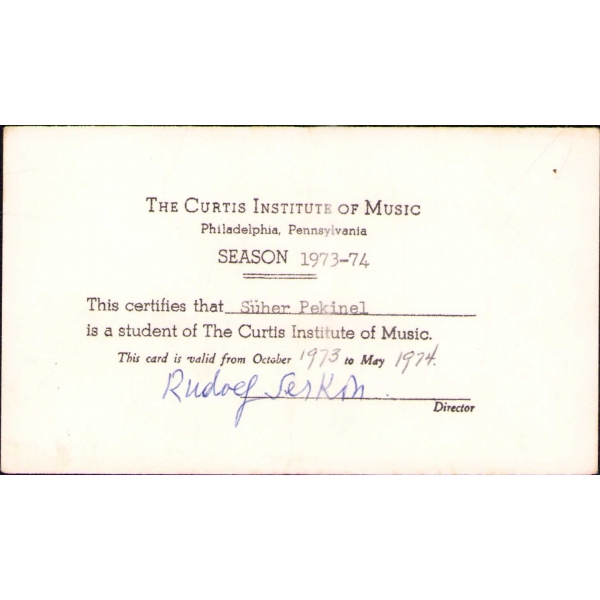 THE CURTIS INSTITUTE OF MUSIC
Philadelphia, Pennsylvania
SEASON 1973-74
This certifies that Süher Pekinel
is a student of The Curtis Institute of Music.
This card is valid from October 1973 to May 1974.
Rudolf Serkin
Director